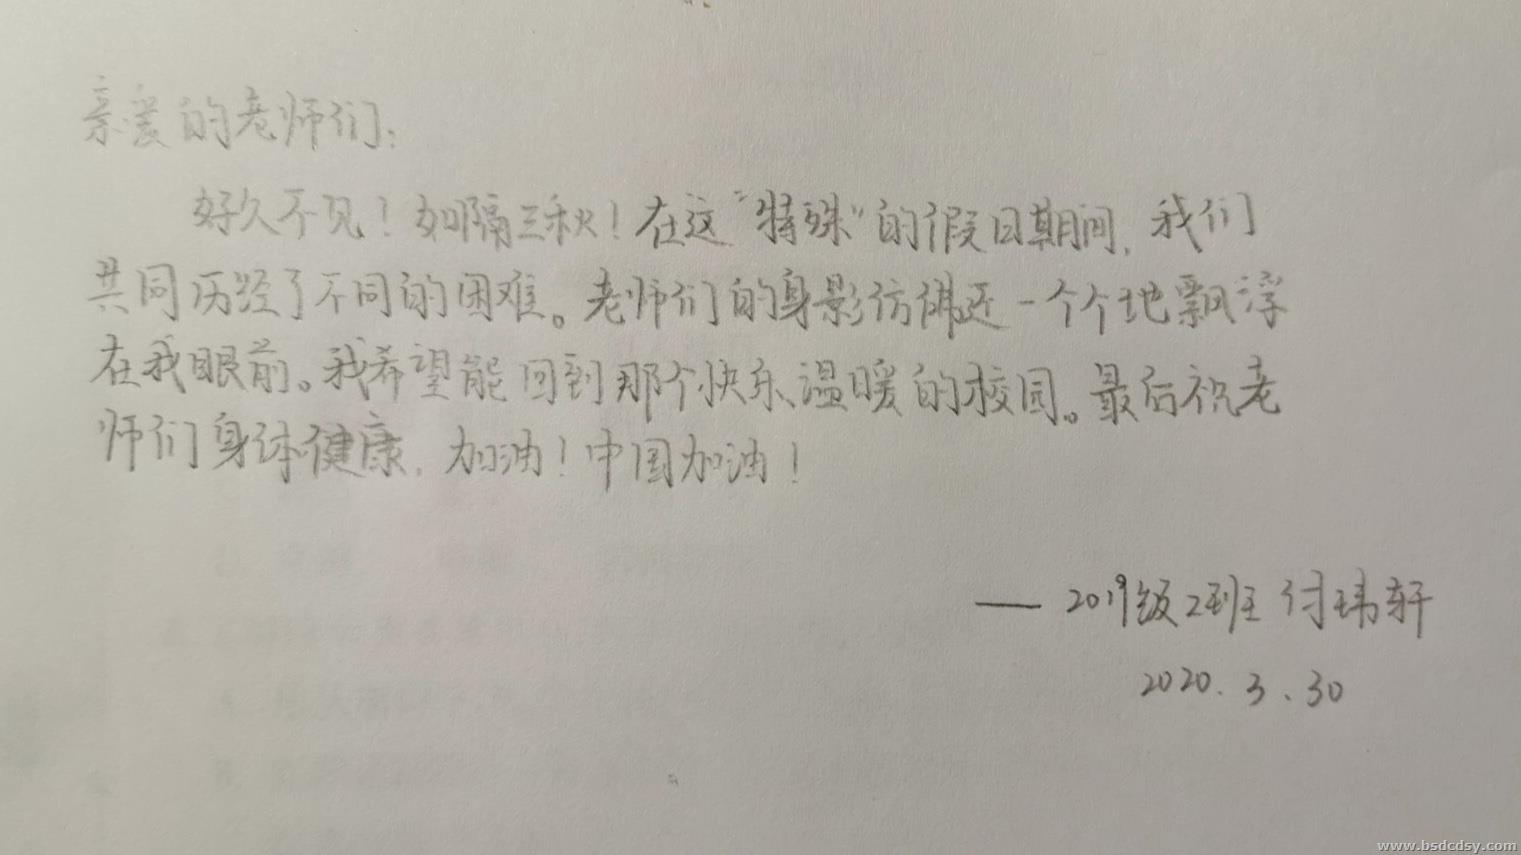 亲爱的老师们:
好久不见!如隔三秋!在这“特殊”的假日期间,我们
共同历经了不同的困难。老师们的身影仿佛还一个个地飘浮
在我眼前。我希望能回到那个快乐、温暖的校园。最后祝老
师们身体健康,加油!中国加油!
—— 2019级2班 付玮轩
2020.3.30
www.bsdcdsy.com